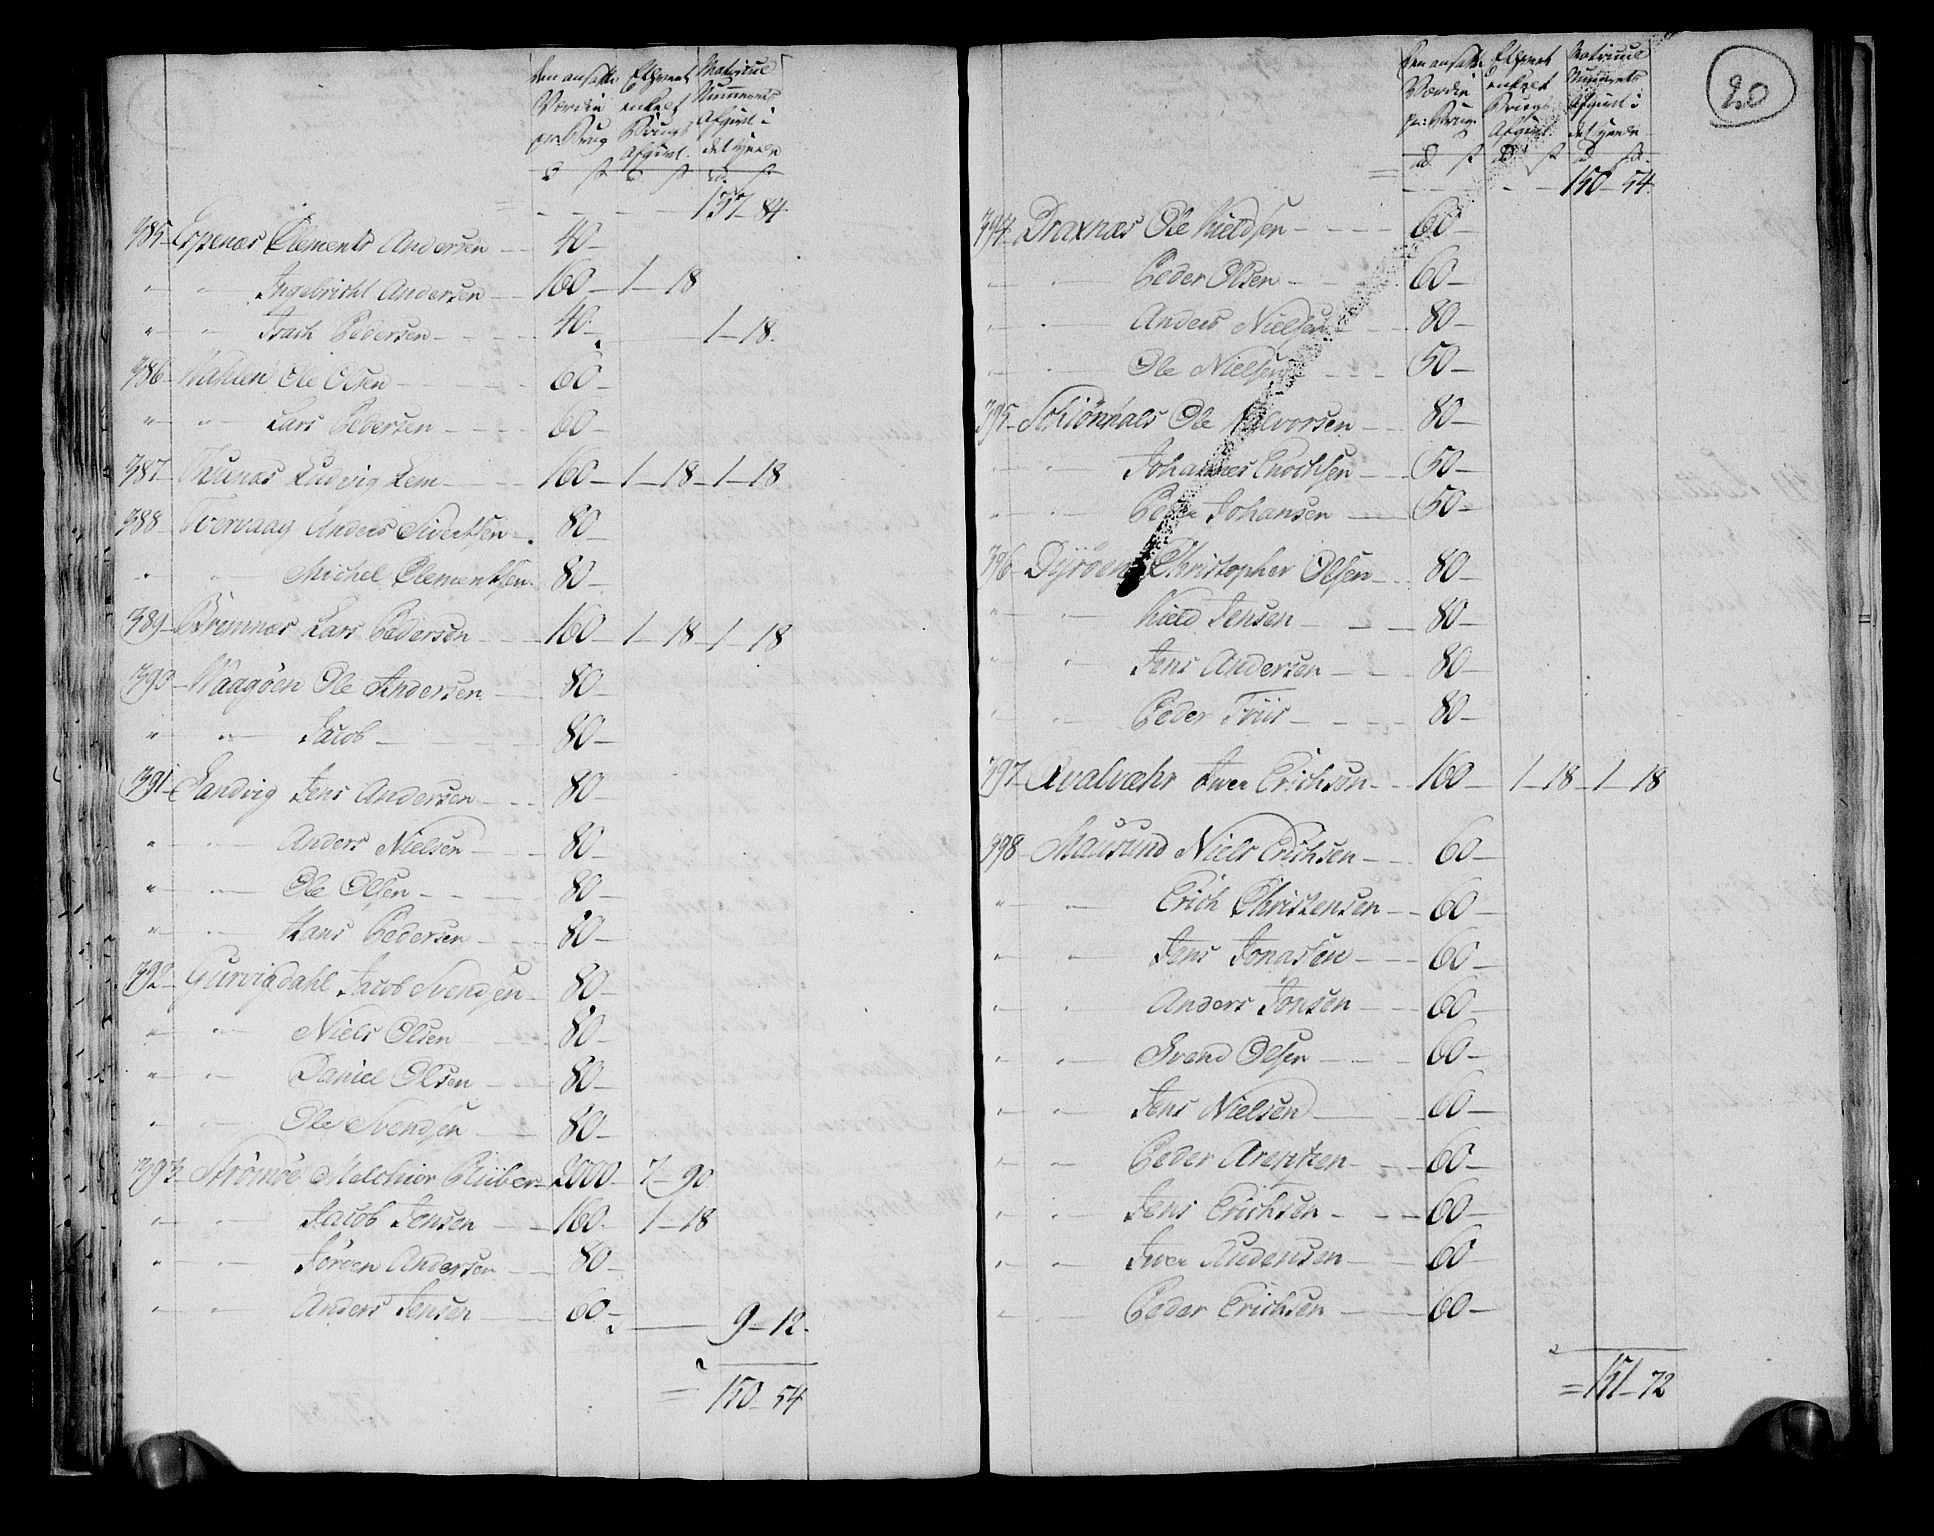 den ansatte Værdie pr: Brug
Ethvert enkelt Brugs Afgivt.
Matricul Nummerets Afgivt i det heele
d ß d ß d. ß
137 - 84.
385 - Espenæs Clements Andersen - 40 -
" " Ingebricht Andersen - 160 - 1 - 18
" " Isach Pedersen - 40 - 1 - 18.
386 - Wahlen Ole Olsen - 60 -
" " Lars Pedersen - 60 -
387 - Thuenæs Ludvig Lem - 160 - 1 - 18 - 1 - 18
388 - Torvaag Anders Sivertsen - 80 -
" " Michel Clementsen - 80 -
389 - Bremnæs Lars Pedersen - 160 - 1 - 18 - 1 - 18
390 - Waagøen Ole Andersen - 80 -
" " Jacob - 80 -
391 - Sandvig Jens Andersen - 80 -
" " Anders Nielsen - 80 -
" " Ole Olsen - 80 -
" " Hans Pedersen - 80 -
392 - Gurvigdahl Jacob Svendsen - 80 -
" " Niels Olsen - 80 -
" " Daniel Olsen - 80 -
" " Ole Svendsen - 80 -
393 - Strømøe Melchior Blüber - 2000 - 7 - 90
" " Jacob Jensen - 160 - 1 - 18
" " Jørgen Andersen - 80 -
" " Anders Jensen - 60 - 9 - 12.
= 150 - 54
20
den ansatte Værdie pr: Brug
Ethvert enkelt Brugs Afgivt.
Matricul Nummerets Afgivt i det heele
d. ß d ß d ß.
= 150 - 54.
394 - Braxnæs Ole Kieldsen - 60 -
" " Peder Olsen - 60 -
" " Anders Nielsen - 80 -
" " Ole Nielsen - 50 -
395 - Schiønhals Ole Halvorsen - 80 -
" " Johannes Enochsen - 50 -
" " Peder Johansen - 50 -
396 - Dyrøen Christopher Olsen - 80 -
" " Kield Jensen - 80 -
" " Jens Andersen - 80 -
" " Peder Friis - 80 -
397 - Qvalvæhr Iver Erichsen - 160 - 1 - 18 - 1 - 18
398 - Mausund Niels Erichsen - 60 -
" " Erich Christensen - 60 -
" " Jens Jonassen - 60 -
" " Anders Jonsen - 60 -
" " Svend Olsen - 60 -
" " Jens Nielsen - 60 -
" " Peder Arentzen - 60 -
" " Jens Erichsen - 60 -
" " Iver Audensen - 60 -
" " Peder Erichsen - 60 -
= 151 - 72